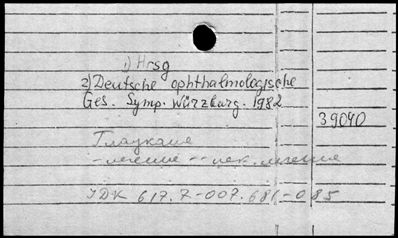 1) Hrsg
2) Deutsche ophthalmologische
Ges. Symp. Würzburg. 1982
39040
Глаукома
- лечение -- лек. лечение
УДК 617.7-007.681-085